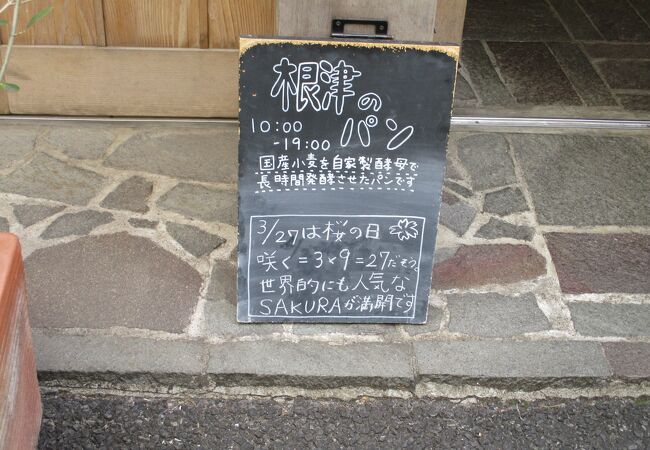 根津の
パン
10:00
-19:00
国産小麦を自家製酵母で
長時間発酵させたパンです
3/27は桜の日
咲く=3×9=27だそう。
世界的にも人気な
SAKURAが満開です